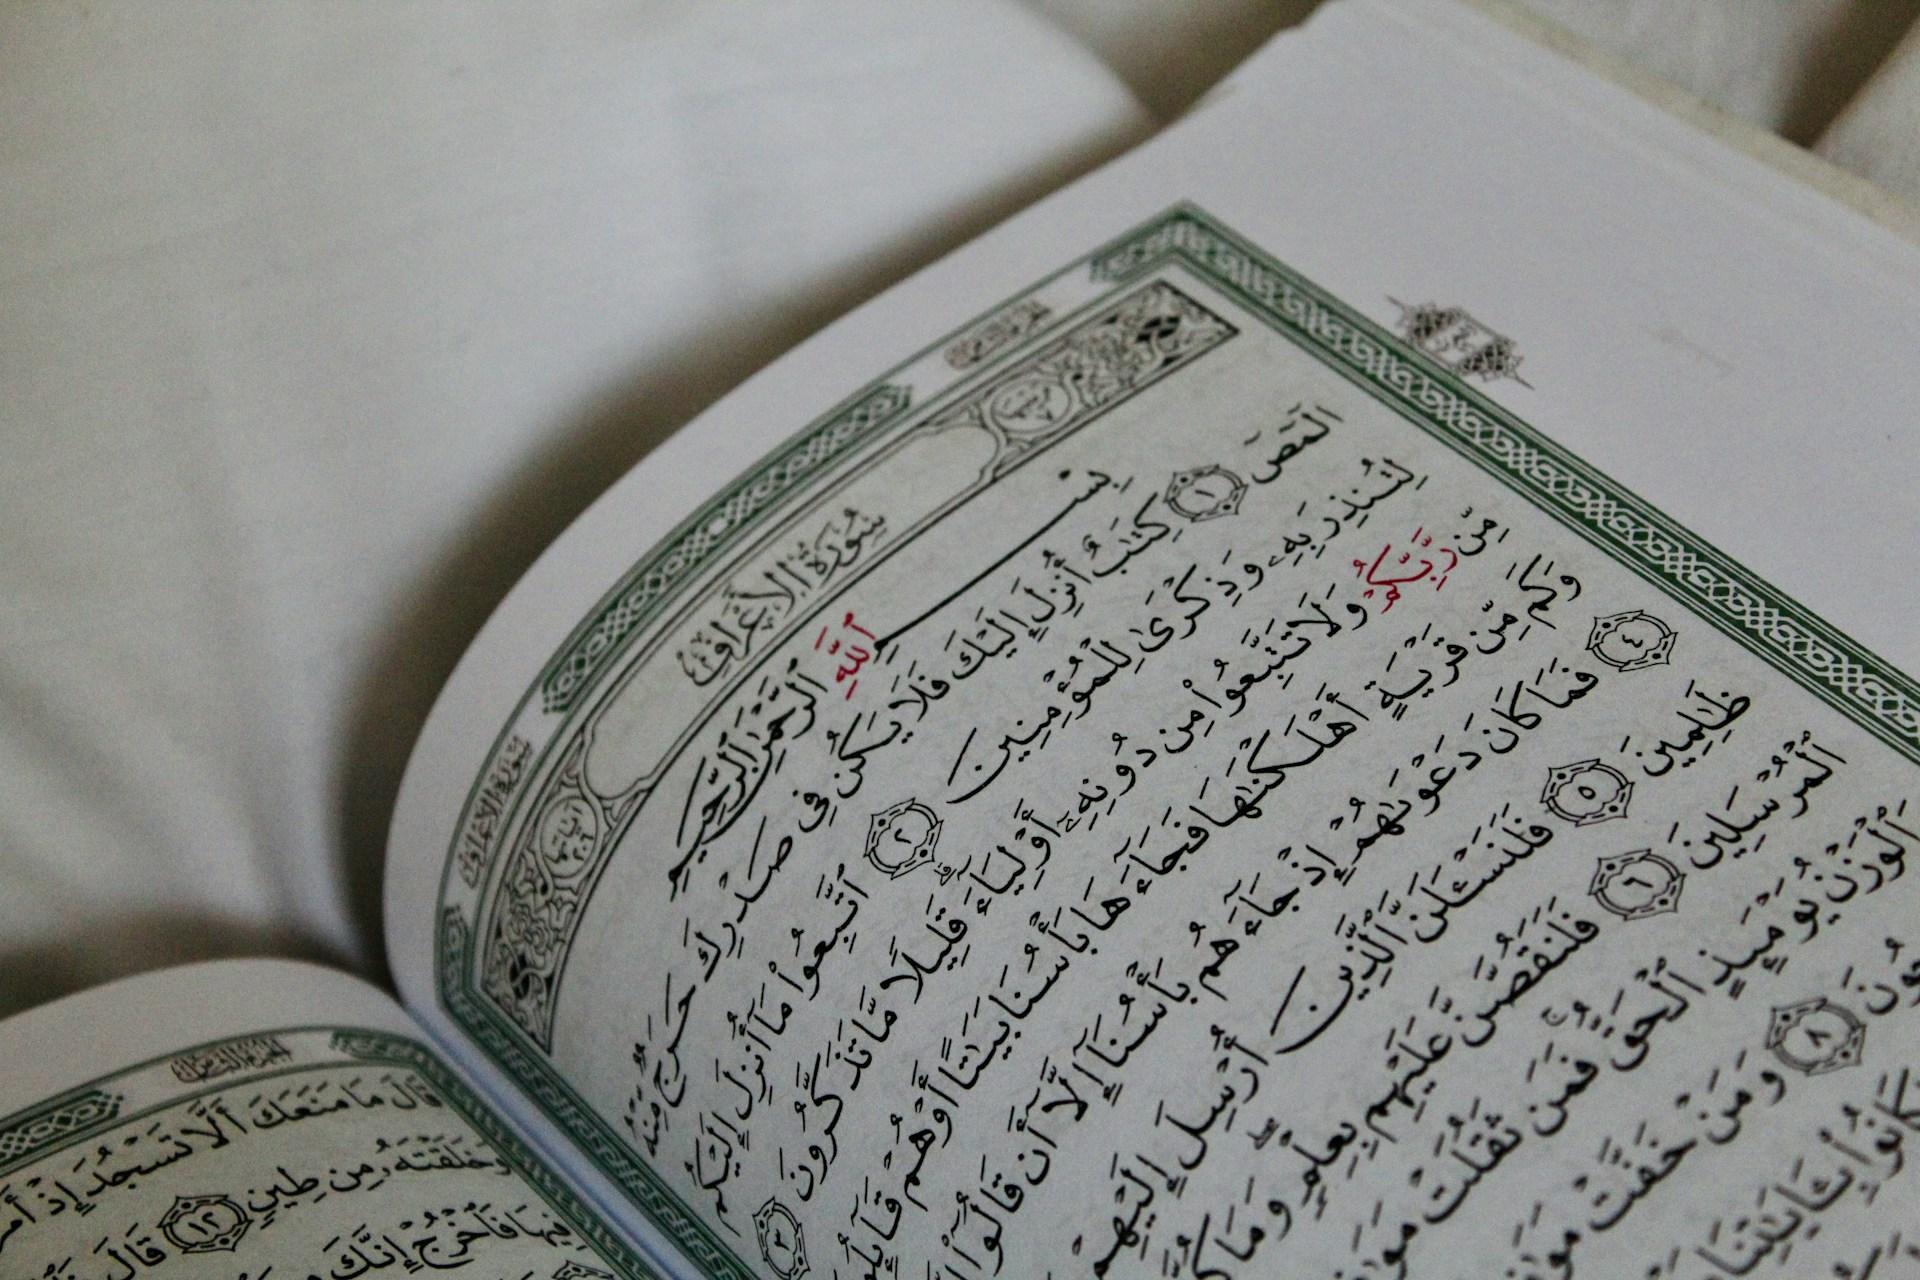 سُورَةُ الأَعْرَافِ
بِسْمِ ٱللَّهِ ٱلرَّحْمَٰنِ ٱلرَّحِيمِ
الٓمٓصٓ ١ كِتَٰبٌ أُنزِلَ إِلَيْكَ فَلَا يَكُن فِى صَدْرِكَ حَرَجٌ مِّنْهُ
لِتُنذِرَ بِهِۦ وَذِكْرَىٰ لِلْمُؤْمِنِينَ ٢ ٱتَّبِعُوا۟ مَآ أُنزِلَ إِلَيْكُم
مِّن رَّبِّكُمْ وَلَا تَتَّبِعُوا۟ مِن دُونِهِۦٓ أَوْلِيَآءَ ۗ قَلِيلًا مَّا تَذَكَّرُونَ ٣
وَكَم مِّن قَرْيَةٍ أَهْلَكْنَٰهَا فَجَآءَهَا بَأْسُنَا بَيَٰتًا أَوْ هُمْ قَآئِلُونَ
٤ فَمَا كَانَ دَعْوَىٰهُمْ إِذْ جَآءَهُم بَأْسُنَآ إِلَّآ أَن قَالُوٓا۟
ظَٰلِمِينَ ٥ فَلَنَسْـَٔلَنَّ ٱلَّذِينَ أُرْسِلَ إِلَيْهِمْ
ٱلْمُرْسَلِينَ ٦ فَلَنَقُصَّنَّ عَلَيْهِم بِعِلْمٍ ۖ وَمَا
وَٱلْوَزْنُ يَوْمَئِذٍ ٱلْحَقُّ ۚ فَمَن ثَقُلَتْ
٨ وَمَنْ خَفَّتْ
كَانُوا۟ بِـَٔايَٰتِنَا
قَالَ مَا مَنَعَكَ أَلَّا تَسْجُدَ إِذْ
وَخَلَقْتَهُۥ مِن طِينٍ ١٢ قَالَ
فِيهَا فَٱخْرُجْ إِنَّكَ